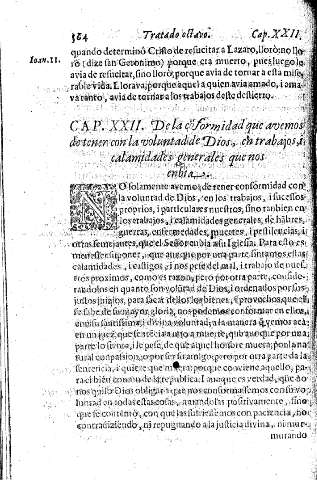 384 Tratado octavo. Cap. XXII.
Ioan. 11.
quando determinó Cristo de resucitar a Lazaro, lloró: no llo
ró (dize san Geronimo) porque era muerto, pues luego lo
avia de resucitar, sino lloró, porque avia de tornar a esta mise
rable vida. Llorava, porque aquel a quien avia amado, i ama
va tanto, avia de tornar a los trabajos deste destierro.
CAP. XXII. De la cõformidad que avemos
de tener con la voluntad de Dios, en trabajos, i
calamidades generales que nos
enbia.
NO solamente avemos de tener conformidad con
la voluntad de Dios, en los trabajos, i sucesos
proprios, i particulares nuestros, sino tanbien en
los trabajos, i calamidades generales, de hãbres,
guerras, enfermedades, muertes, i pestilencias, i
otras semejantes, que el Señor enbia a su Iglesia. Para esto es
que aunque por una parte sintamos estas
calamidades, i castigos, i nos pese del mal, i trabajo de nues
tros proximos, como es razon, pero por otra parte, conside
randolos en quanto son volũtad de Dios, i ordenados por sus
justos juizios, para sacar dellos los bienes, i provechos que el
se sabe de su mayor gloria, nos podemos conformar en ellos,
con su santissima, i divina voluntad, a la manera q̃ vemos acá
en un juez, que sentencia a uno a muerte, que aunque por una
parte lo sienta, i le pese, de que aquel hombre muera, por la na
tural conpassion, o por ser su amigo, pero por otra parte da la
sentencia, i quiere que muera, porque conviene aquello, pa
ra el bien comun de la republica. I aunque es verdad, que no
nos quiso Dios obligar a que nos conformasemos con su vo
luntad en todas estas cosas, amandolas positivamente, sino
que se contentó, con que las sufriesemos con paciencia, no
contradiziendo, ni repugnando a la justicia divina, ni mur-
murando